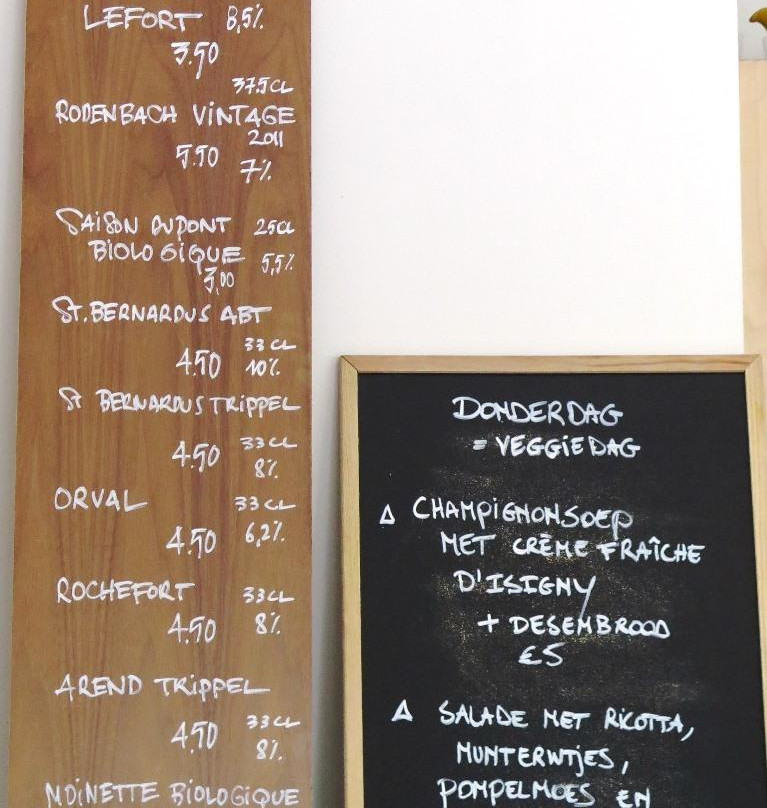 LEFORT 8,5%
3.50
37.5CL
RODENBACH VINTAGE
2011
5.50 7%
SAISON DUPONT 25CL
BIOLOGIQUE 5,5%
3,00
ST. BERNARDUS ABT
33 CL
4.50 10%
ST BERNARDUS TRIPPEL
33 CL
4.50 8%
ORVAL 33 CL
4.50 6,2%
ROCHEFORT 33CL
4.50 8%
AREND TRIPPEL
33 CL
4.50 8%
MOINETTE BIOLOGIQUE
DONDERDAG
= VEGGIEDAG
Δ CHAMPIGNONSOEP
MET CRÈME FRAÎCHE
D'ISIGNY
+ DESEMBROOD
£5
Δ SALADE MET RICOTTA,
MUNTERWTJES,
POMPELMOES EN